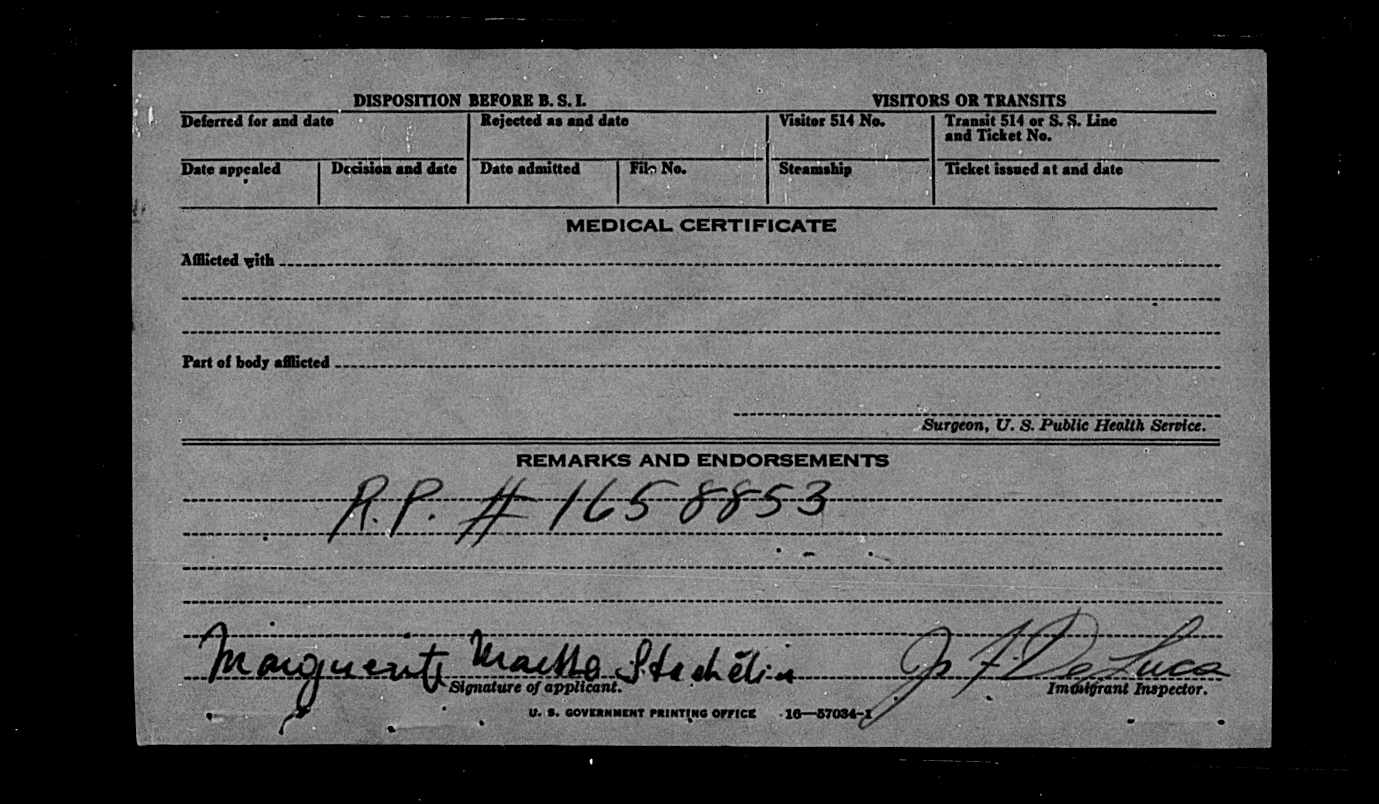 DISPOSITION BEFORE B. S. I. VISITORS OR TRANSITS
Deferred for and date Rejected as and date Visitor 514 No. Transit 514 or S. S. Line
and Ticket No.
Date appealed Decision and date Date admitted File No. Steamship Ticket issued at and date
MEDICAL CERTIFICATE
Afflicted with
Part of body afflicted
Surgeon, U. S. Public Health Service.
REMARKS AND ENDORSEMENTS
R.P. # 1658853
Marguerite Martha Stachélin J. F. De Luca
Signature of applicant. Immigrant Inspector.
U. S. GOVERNMENT PRINTING OFFICE 16—57034-1